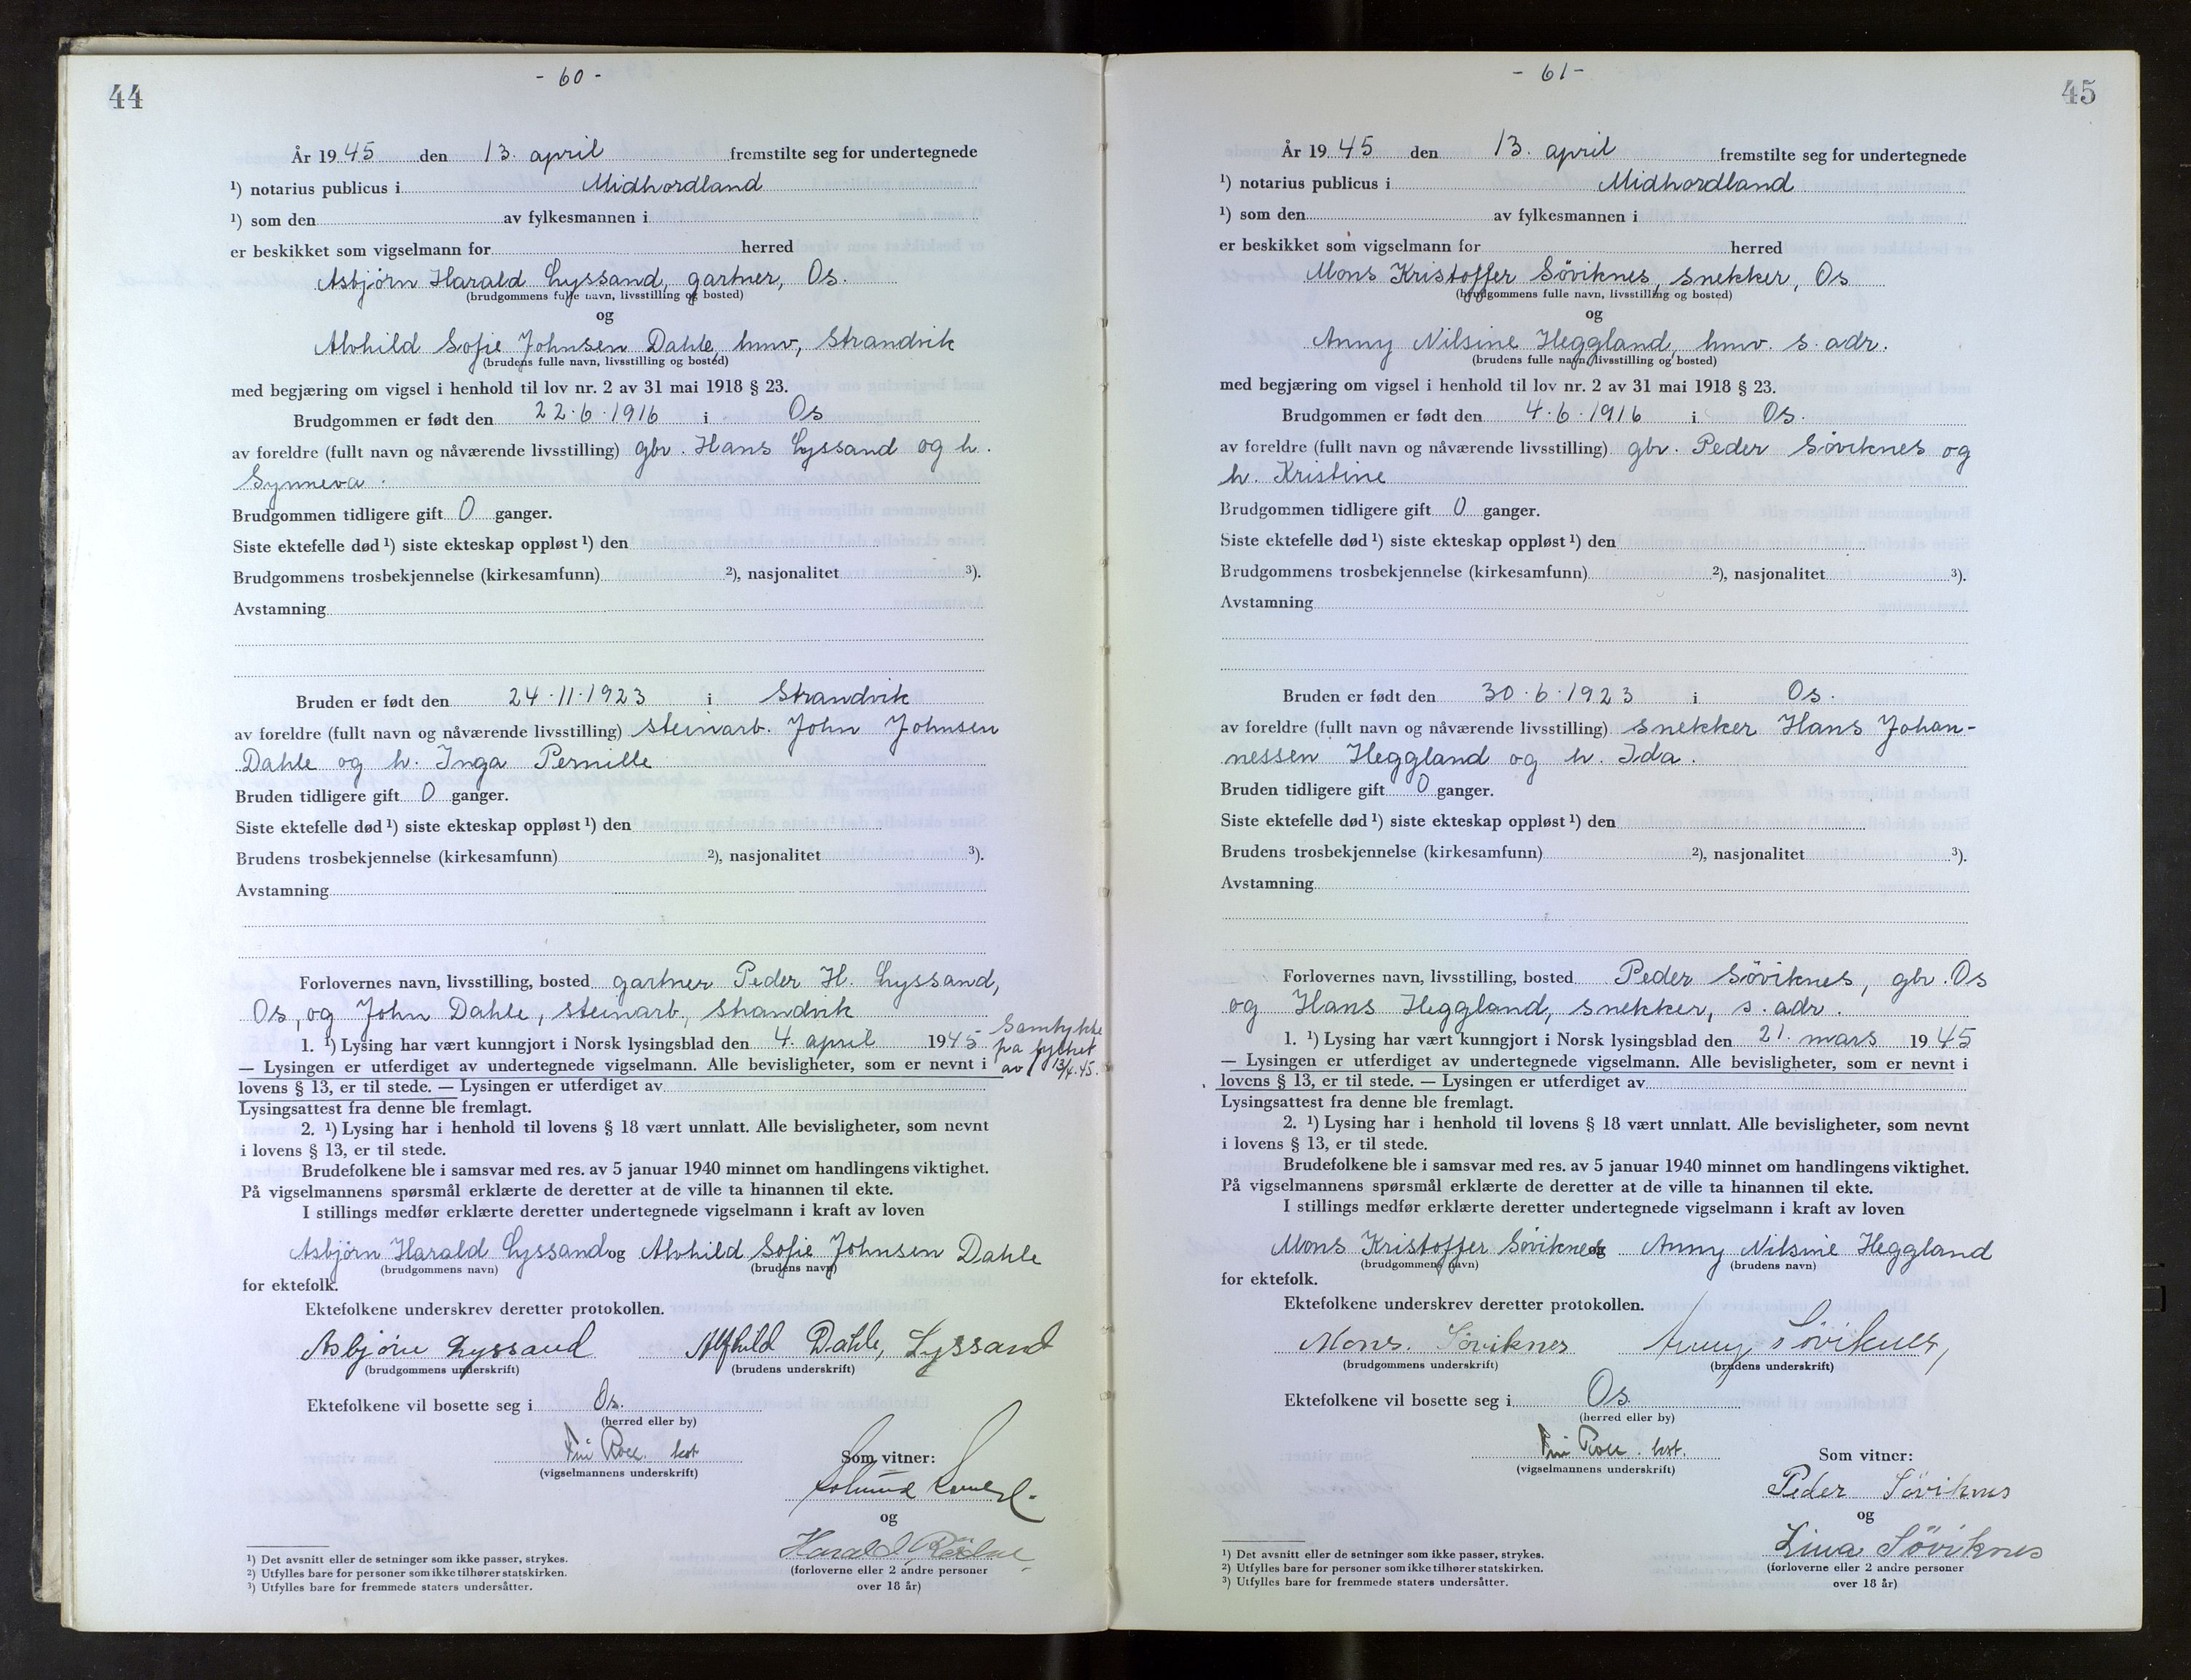 44
- 60 -
År 1945 den 13. april fremstilte seg for undertegnede
¹) notarius publicus i Midhordland
¹) som den av fylkesmannen i
er beskikket som vigselmann for herred
Asbjörn Harald Lyssand, gartner, Os.
(brudgommens fulle navn, livsstilling og bosted)
og
Alvhild Sofie Johnsen Dahle, hmv, Strandvik
(brudens fulle navn, livsstilling og bosted)
med begjæring om vigsel i henhold til lov nr. 2 av 31 mai 1918 § 23.
Brudgommen er født den 22.6.1916 i Os
av foreldre (fullt navn og nåværende livsstilling) gbr. Hans Lyssand og h.
Synneva.
Brudgommen tidligere gift 0 ganger.
Siste ektefelle død ¹) siste ekteskap oppløst ¹) den
Brudgommens trosbekjennelse (kirkesamfunn) ²), nasjonalitet ³).
Avstamning
Bruden er født den 24.11.1923 i Strandvik
av foreldre (fullt navn og nåværende livsstilling) steinarb. John Johnsen
Dahle og h. Inga Pernille
Bruden tidligere gift 0 ganger.
Siste ektefelle død ¹) siste ekteskap oppløst ¹) den
Brudens trosbekjennelse (kirkesamfunn) ²), nasjonalitet ³).
Avstamning
Forlovernes navn, livsstilling, bosted gartner Peder H. Lyssand,
Os, og John Dahle, steinarb, Strandvik
1. ¹) Lysing har vært kunngjort i Norsk lysingsblad den 4. april 1945
Samtykke
fra fylket
av 13/4.45.
— Lysingen er utferdiget av undertegnede vigselmann. Alle bevisligheter, som er nevnt i
lovens § 13, er til stede. — Lysingen er utferdiget av
Lysingsattest fra denne ble fremlagt.
2. ¹) Lysing har i henhold til lovens § 18 vært unnlatt. Alle bevisligheter, som nevnt
i lovens § 13, er til stede.
Brudefolkene ble i samsvar med res. av 5 januar 1940 minnet om handlingens viktighet.
På vigselmannens spørsmål erklærte de deretter at de ville ta hinannen til ekte.
I stillings medfør erklærte deretter undertegnede vigselmann i kraft av loven
Asbjörn Harald Lyssand og Alvhild Sofie Johnsen Dahle
(brudgommens navn) (brudens navn)
for ektefolk.
Ektefolkene underskrev deretter protokollen.
Asbjørn Lyssand Alfhild Dahle, Lyssand
(brudgommens underskrift) (brudens underskrift)
Ektefolkene vil bosette seg i Os.
(herred eller by)
(vigselmannens underskrift)
Som vitner:
og
Harald
(forloverne eller 2 andre personer
over 18 år)
¹) Det avsnitt eller de setninger som ikke passer, strykes.
²) Utfylles bare for personer som ikke tilhører statskirken.
³) Utfylles bare for fremmede staters undersåtter.
45
- 61 -
År 1945 den 13. april fremstilte seg for undertegnede
¹) notarius publicus i Midhordland
¹) som den av fylkesmannen i
er beskikket som vigselmann for herred
Mons Kristoffer Söviknes, snekker, Os
(brudgommens fulle navn, livsstilling og bosted)
og
Anny Nilsine Heggland, hmv. s. adr.
(brudens fulle navn, livsstilling og bosted)
med begjæring om vigsel i henhold til lov nr. 2 av 31 mai 1918 § 23.
Brudgommen er født den 4.6.1916 i Os.
av foreldre (fullt navn og nåværende livsstilling) gbr. Peder Söviknes og
h. Kristine
Brudgommen tidligere gift 0 ganger.
Siste ektefelle død ¹) siste ekteskap oppløst ¹) den
Brudgommens trosbekjennelse (kirkesamfunn) ²), nasjonalitet ³).
Avstamning
Bruden er født den 30.6.1923 i Os.
av foreldre (fullt navn og nåværende livsstilling) snekker Hans Johan-
nessen Heggland og h. Ida.
Bruden tidligere gift 0 ganger.
Siste ektefelle død ¹) siste ekteskap oppløst ¹) den
Brudens trosbekjennelse (kirkesamfunn) ²), nasjonalitet ³).
Avstamning
Forlovernes navn, livsstilling, bosted Peder Söviknes, gbr. Os
og Hans Heggland, snekker, s. adr.
1. ¹) Lysing har vært kunngjort i Norsk lysingsblad den 21. mars 1945
— Lysingen er utferdiget av undertegnede vigselmann. Alle bevisligheter, som er nevnt i
lovens § 13, er til stede. — Lysingen er utferdiget av
Lysingsattest fra denne ble fremlagt.
2. ¹) Lysing har i henhold til lovens § 18 vært unnlatt. Alle bevisligheter, som nevnt
i lovens § 13, er til stede.
Brudefolkene ble i samsvar med res. av 5 januar 1940 minnet om handlingens viktighet.
På vigselmannens spørsmål erklærte de deretter at de ville ta hinannen til ekte.
I stillings medfør erklærte deretter undertegnede vigselmann i kraft av loven
Mons Kristoffer Söviknes og Anny Nilsine Heggland
(brudgommens navn) (brudens navn)
for ektefolk.
Ektefolkene underskrev deretter protokollen.
Mons. Söviknes Anny Söviknes,
(brudgommens underskrift) (brudens underskrift)
Ektefolkene vil bosette seg i Os.
(herred eller by)
(vigselmannens underskrift)
Som vitner:
Peder Söviknes
og
Lina Söviknes
(forloverne eller 2 andre personer
over 18 år)
¹) Det avsnitt eller de setninger som ikke passer, strykes.
²) Utfylles bare for personer som ikke tilhører statskirken.
³) Utfylles bare for fremmede staters undersåtter.